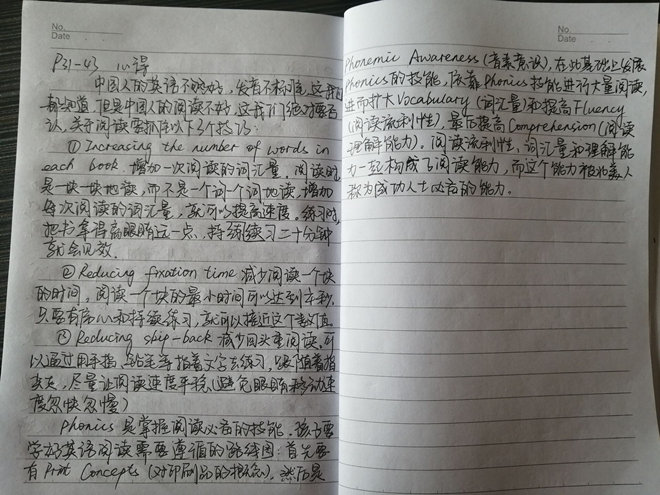 No.
Date
P31-43 心得
中国人的英语不够好,发音不标准,这我们
都知道,但是中国人的阅读不好,这我们绝对要否
认,关于阅读要抓住以下3个技巧:
① Increasing the number of words in
each book 增加一次阅读的词汇量。阅读时
是一块一块地读,而不是一个词一个词地读,增加
每次阅读的词汇量,就可以提高速度。练习时,
把书拿得离眼睛远一点,持续练习二十分钟
就会见效。
② Reducing fixation time 减少阅读一个块
的时间,阅读一个块的最小时间可以达到
只要有 心和持续练习,就可以接近这个数值。
Reducing skip-back 减少回头重阅读,可
以通过用手指、铅笔等指着文字去练习,眼随着指
尖走,尽量让阅读速度平稳(避免眼睛移动速
度忽快忽慢)
Phonics 是掌握阅读必备的技能。孩子要
学好英语阅读需要遵循的路线图:首先要
有 Print Concepts (对印刷品的概念),然后是
No.
Date
Phonemic Awareness (音素意识),在此基础上发展
Phonics 的技能,依靠 Phonics 技能进行大量阅读,
进而扩大 Vocabulary (词汇量)和提高 Fluency
(阅读流利性),最后提高 Comprehension (阅读
理解能力)。阅读流利性、词汇量和理解能
力一起构成了阅读能力,而这个能力被 人
称为成功人士必备的能力。